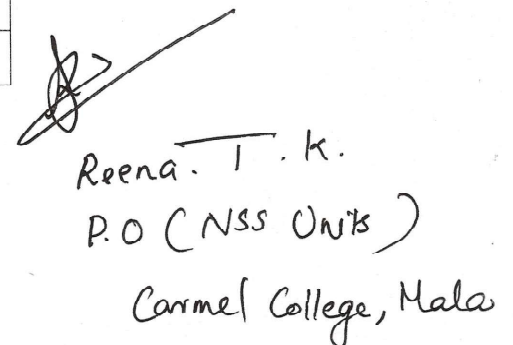 Reena. T. K.
P.O (NSS Units)
Carmel College, Mala